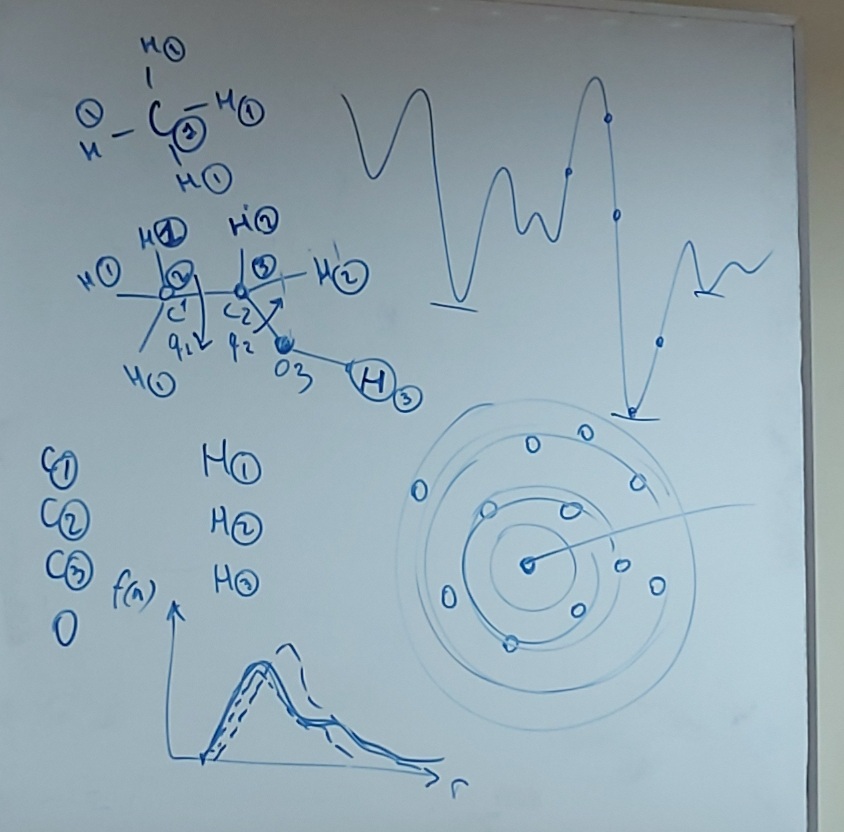 H①
① C① H①
H
H①
H① H②
H① ② ③ H②
C1 C2
q1 q2
H① O3 H③
C① H①
C② H②
C③ H③
O
f(r)
r